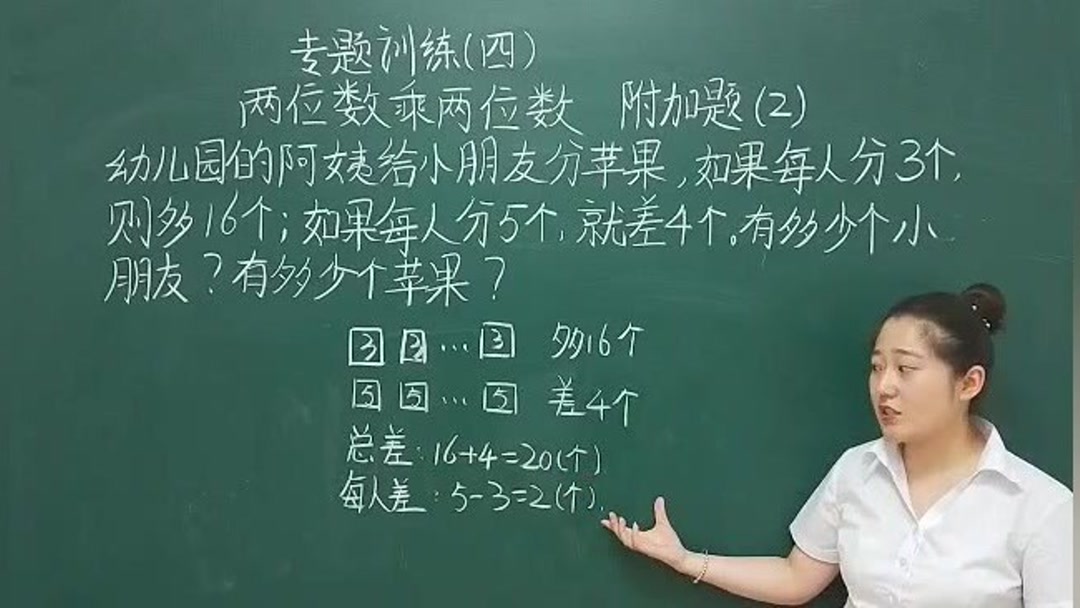 专题训练(四)
两位数乘两位数 附加题(2)
幼儿园的阿姨给小朋友分苹果,如果每人分3个,
则多16个;如果每人分5个,就差4个。有多少个小
朋友?有多少个苹果?
3 3 … 3 多16个
5 5 … 5 差4个
总差:16+4=20(个)
每人差:5-3=2(个)